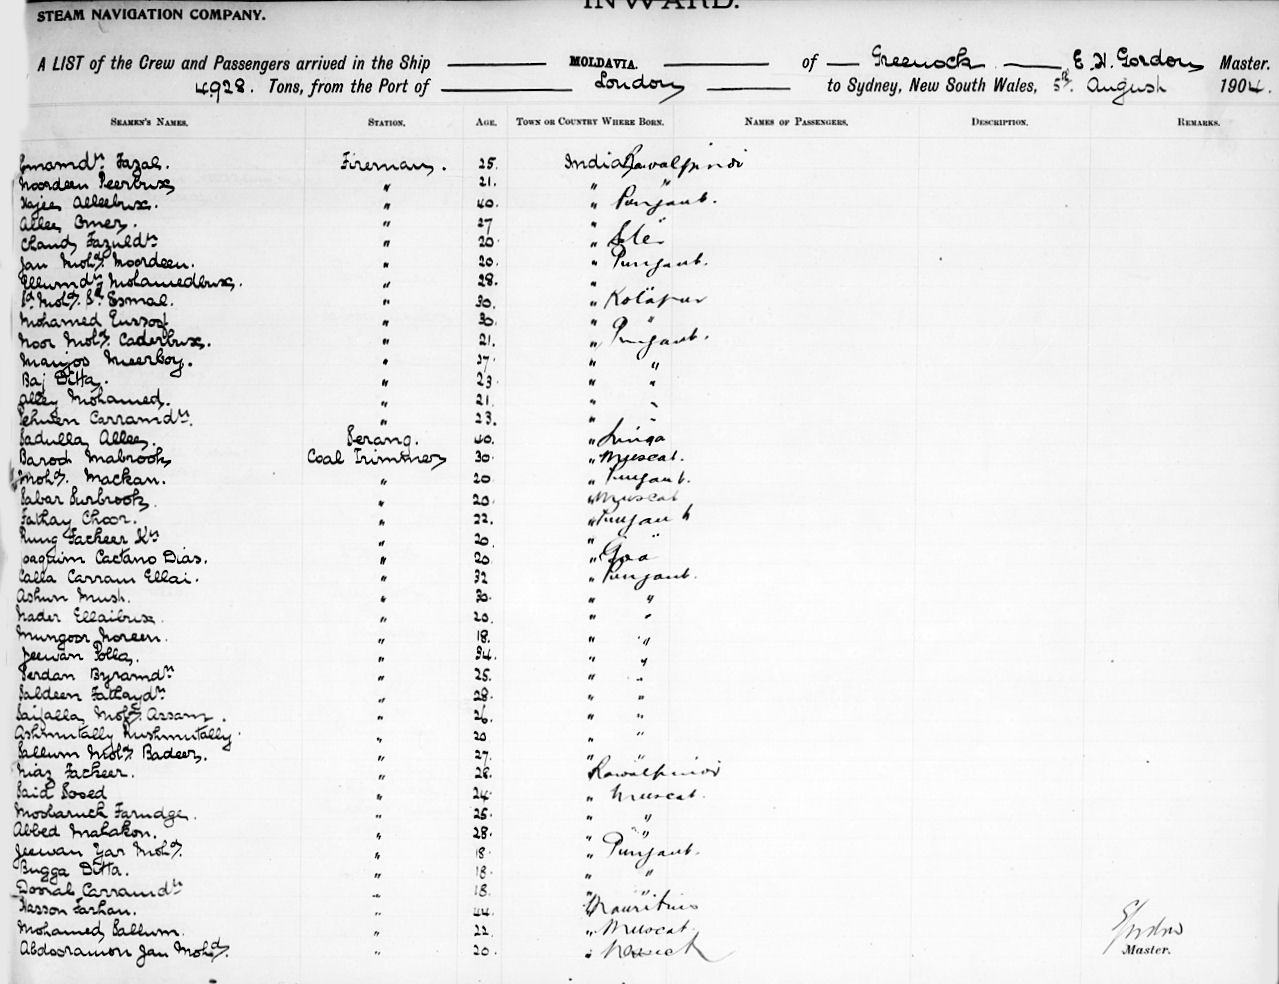 INWARD.
STEAM NAVIGATION COMPANY.
A LIST of the Crew and Passengers arrived in the Ship MOLDAVIA. of Greenock E. H. Gordon Master.
4928. Tons, from the Port of London to Sydney, New South Wales, 5th. August 1904.
SEAMEN'S NAMES. STATION. AGE. TOWN OR COUNTRY WHERE BORN. NAMES OF PASSENGERS. DESCRIPTION. REMARKS.
Emamdn. Fazal. Fireman. 25. India Rawalpindi
Noordeen Peerbux " 21. " "
Hajee Alleebux. " 40. " Punjaub.
Allee Omer. " 27 " "
Chand Fazuldn " 20 "
Jan Mohd. Noordeen. " 20. " Punjaub.
Ellumdn Mohamedbux. " 28. " "
Mohd. Esmal. " 30. " Kolapur
Mohamed Eussof " 30. " "
Noor Mohd. Caderbux. " 21. " Punjaub.
Manjos Meerboy. " 27. " "
Baj Ditta. " 23. " "
Alley Mohamed. " 21. " "
Carramdn. " 23. " "
Sadulla Allee. Serang. 40. "
Barod Mabrook Coal Trimmer 30. " Muscat.
Mohd. Mackan. " 20 " Punjaub.
Sabar Surbrook. " 20. " Muscat
Fathay Choor. " 22. " Punjaub
Rung Fackeer Kn " 20. " "
Joaquim Caetano Dias. " 20 " Goa
Calla Carram Ellai. " 32 " Punjaub.
Ashun Mush. " 30. " "
Nader Ellaibux. " 20. " "
Mungoor Noreen. " 18. " "
Jeewan Polla. " 34. " "
Serdan Byramdn " 25. " "
Saldeen Fathaydn " 28. " "
Saifalla Mohd. Assam. " 26. " "
Ashmutally Hushmutally. " 20 " "
Sallum Mohd. Badeer. " 27. " "
Niaz Fackeer. " 28. Rawalpindi
Said Sosed " 24. " Muscat.
Moobaruck Farudge. " 25. " "
Abbed Mahakon. " 28. " "
Jeewan Yar Mohd. " 18. " Punjaub.
Bugga Ditta. " 18. " "
Dooral Carramdn " 18. " "
Hasson Farhan. " 44. " Mauritius
Mohamed Sallum. " 22. " Muscat.
Abdooramon Jan Mohd. " 20. "
Master.